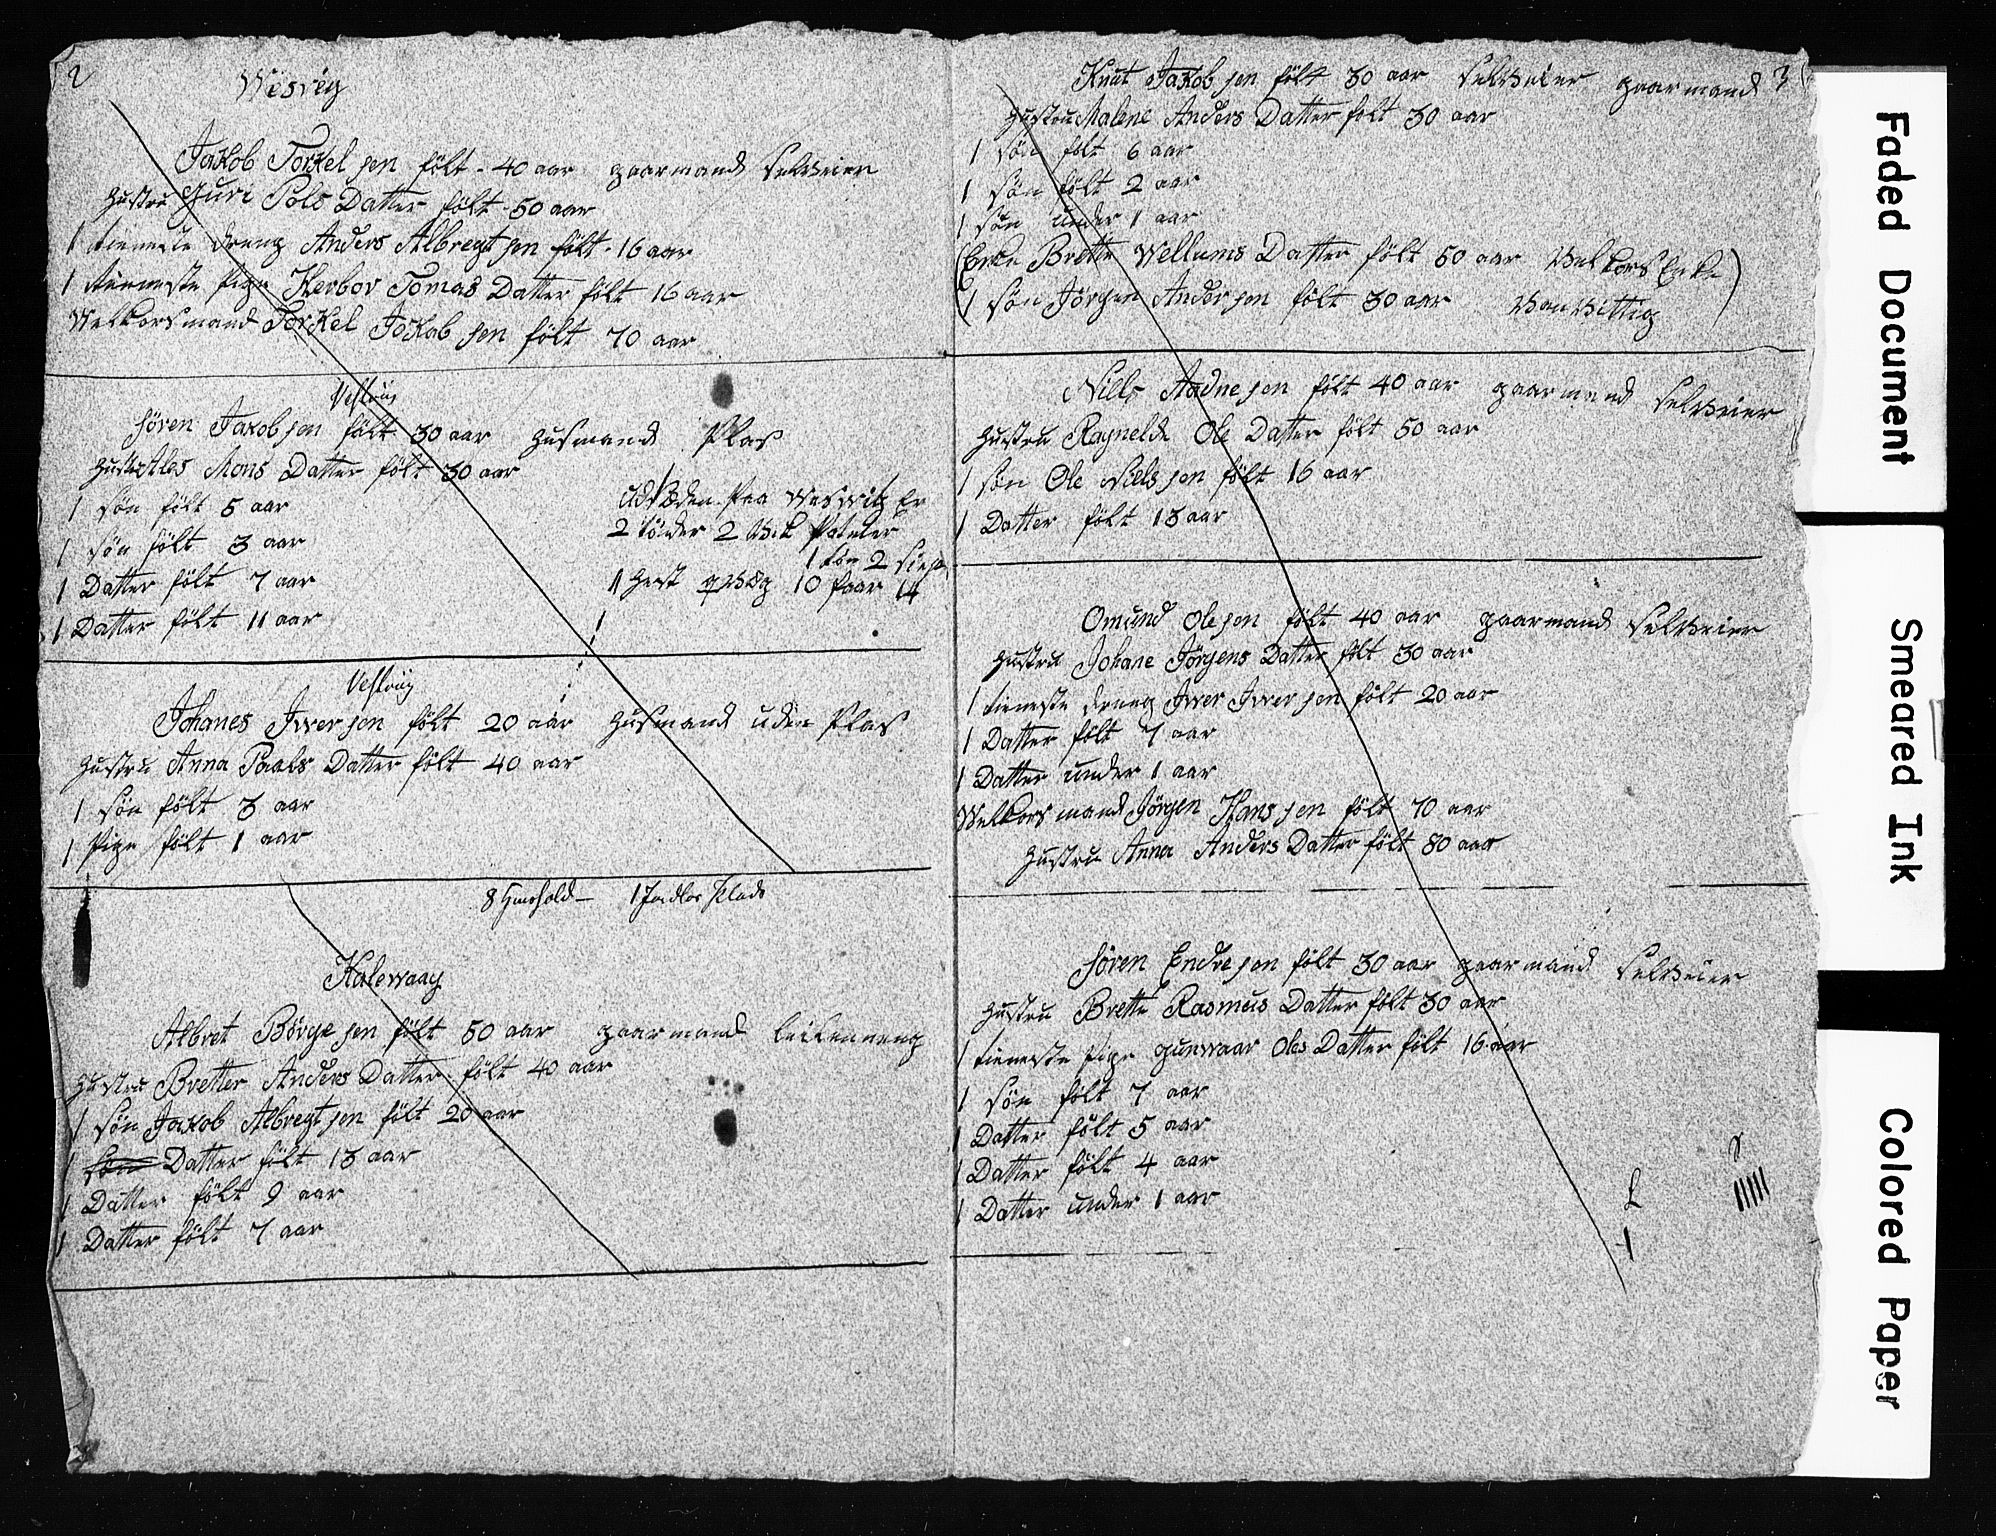 2
Wesvig
Jakob Torkel sen fölt - 40 aar gaarmand selveier
Hustru Guri Pols Datter fölt - 50 aar
1 tieneste dreng Anders Albregt sen fölt - 16 aar
1 tieneste Pige Herbor Tomas Datter fölt 16 aar
Welkorsmand Torkel Jakob sen fölt 70 aar
Vestvig
Sören Jakob sen fölt 30 aar Husmand Plas
Hustru Ales Mons Datter fölt 30 aar
1 sön fölt 5 aar
1 sön fölt 3 aar
1 Datter fölt 7 aar
1 Datter fölt 11 aar
Udsæden Paa Weswig Er
2 tönder 2
1 tön 2
1 Hest 10 faar 14
1
Vestvig
Johanes Iver sen fölt 20 aar Husmand uden Plas
Hustru Anna Paals Datter fölt 40 aar
1 sön fölt 3 aar
1 Pige fölt 1 aar
8 Huushold - 1 Jordløs Plads
Kalewaag
Albret Börge sen fölt 50 aar gaarmand leilenneng
Hustru Bretter Anders Datter fölt 40 aar
1 sön Jakob Albregt sen fölt 20 aar
1 sön Datter fölt 13 aar
1 Datter fölt 9 aar
1 Datter fölt 7 aar
3
Knut Jakob sen fölt 30 aar selveier gaarmand
Hustru Malene Anders Datter fölt 30 aar
1 sön fölt 6 aar
1 sön fölt 2 aar
1 sön under 1 aar
(Enke Brette Wellums Datter fölt 50 aar Velkors Enke)
(1 sön Jörgen Ander sen fölt 30 aar Vanvittig)
Niels Aadne sen fölt 40 aar gaarmand selveier
Hustru Ragnelde Ole Datter fölt 50 aar
1 sön Ole Niels sen fölt 16 aar
1 Datter fölt 13 aar
Omund Ole sen fölt 40 aar gaarmand selveier
Hustru Johane Jörgens Datter fölt 30 aar
1 tieneste dreng Iver Iver sen fölt 20 aar
1 Datter fölt 7 aar
1 Datter under 1 aar
Welkors mand Jörgen Hans sen fölt 70 aar
Hustru Anna Anders Datter fölt 80 aar
Sören Endre sen fölt 30 aar gaarmand selveier
Hustru Brette Rasmus Datter fölt 30 aar
1 tieneste Pige gunwaar Oles Datter fölt 16 aar
1 sön fölt 7 aar
1 Datter fölt 5 aar
1 Datter fölt 4 aar
1 Datter under 1 aar
L
1
S
IIIII
Faded Document
Smeared Ink
Colored Paper